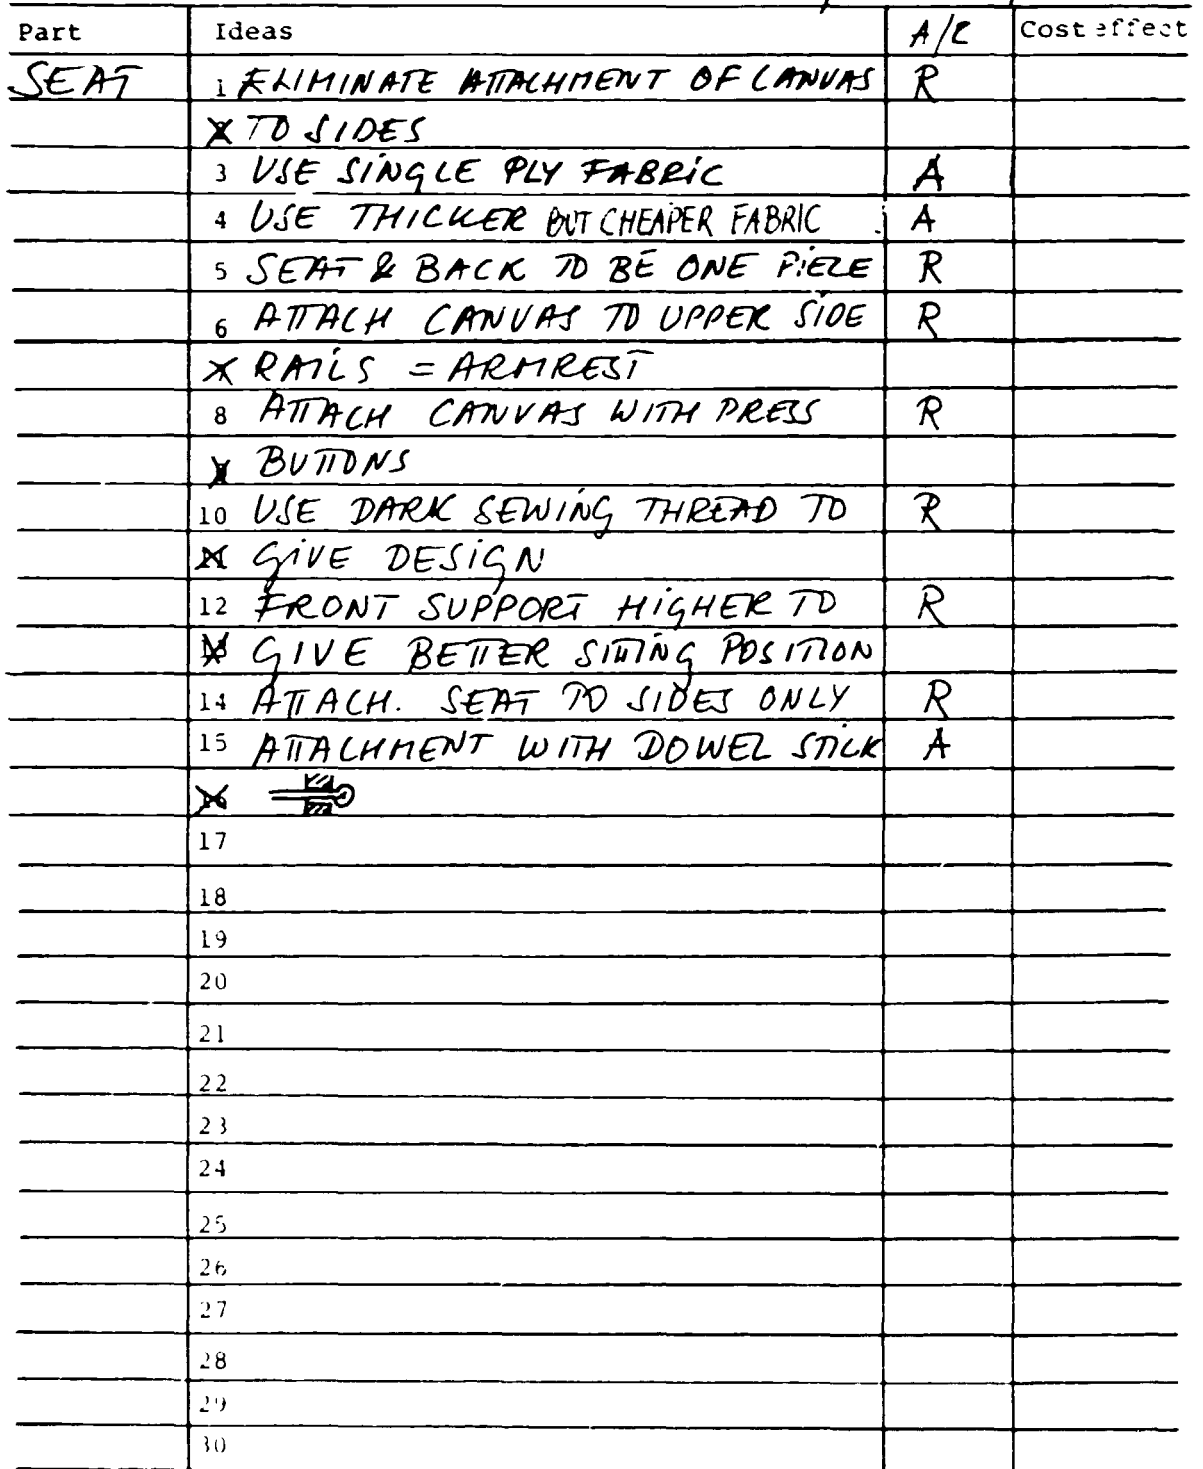 Part Ideas A/R Cost effect
SEAT 1 ELIMINATE ATTACHMENT OF CANVAS R
TO SIDES
3 USE SINGLE PLY FABRIC A
4 USE THICKER BUT CHEAPER FABRIC A
5 SEAT & BACK TO BE ONE PIECE R
6 ATTACH CANVAS TO UPPER SIDE R
RAILS = ARMREST
8 ATTACH CANVAS WITH PRESS R
BUTTONS
10 USE DARK SEWING THREAD TO R
GIVE DESIGN
12 FRONT SUPPORT HIGHER TO R
GIVE BETTER SITTING POSITION
14 ATTACH. SEAT TO SIDES ONLY R
15 ATTACHMENT WITH DOWEL STICK A
16
17
18
19
20
21
22
23
24
25
26
27
28
29
30